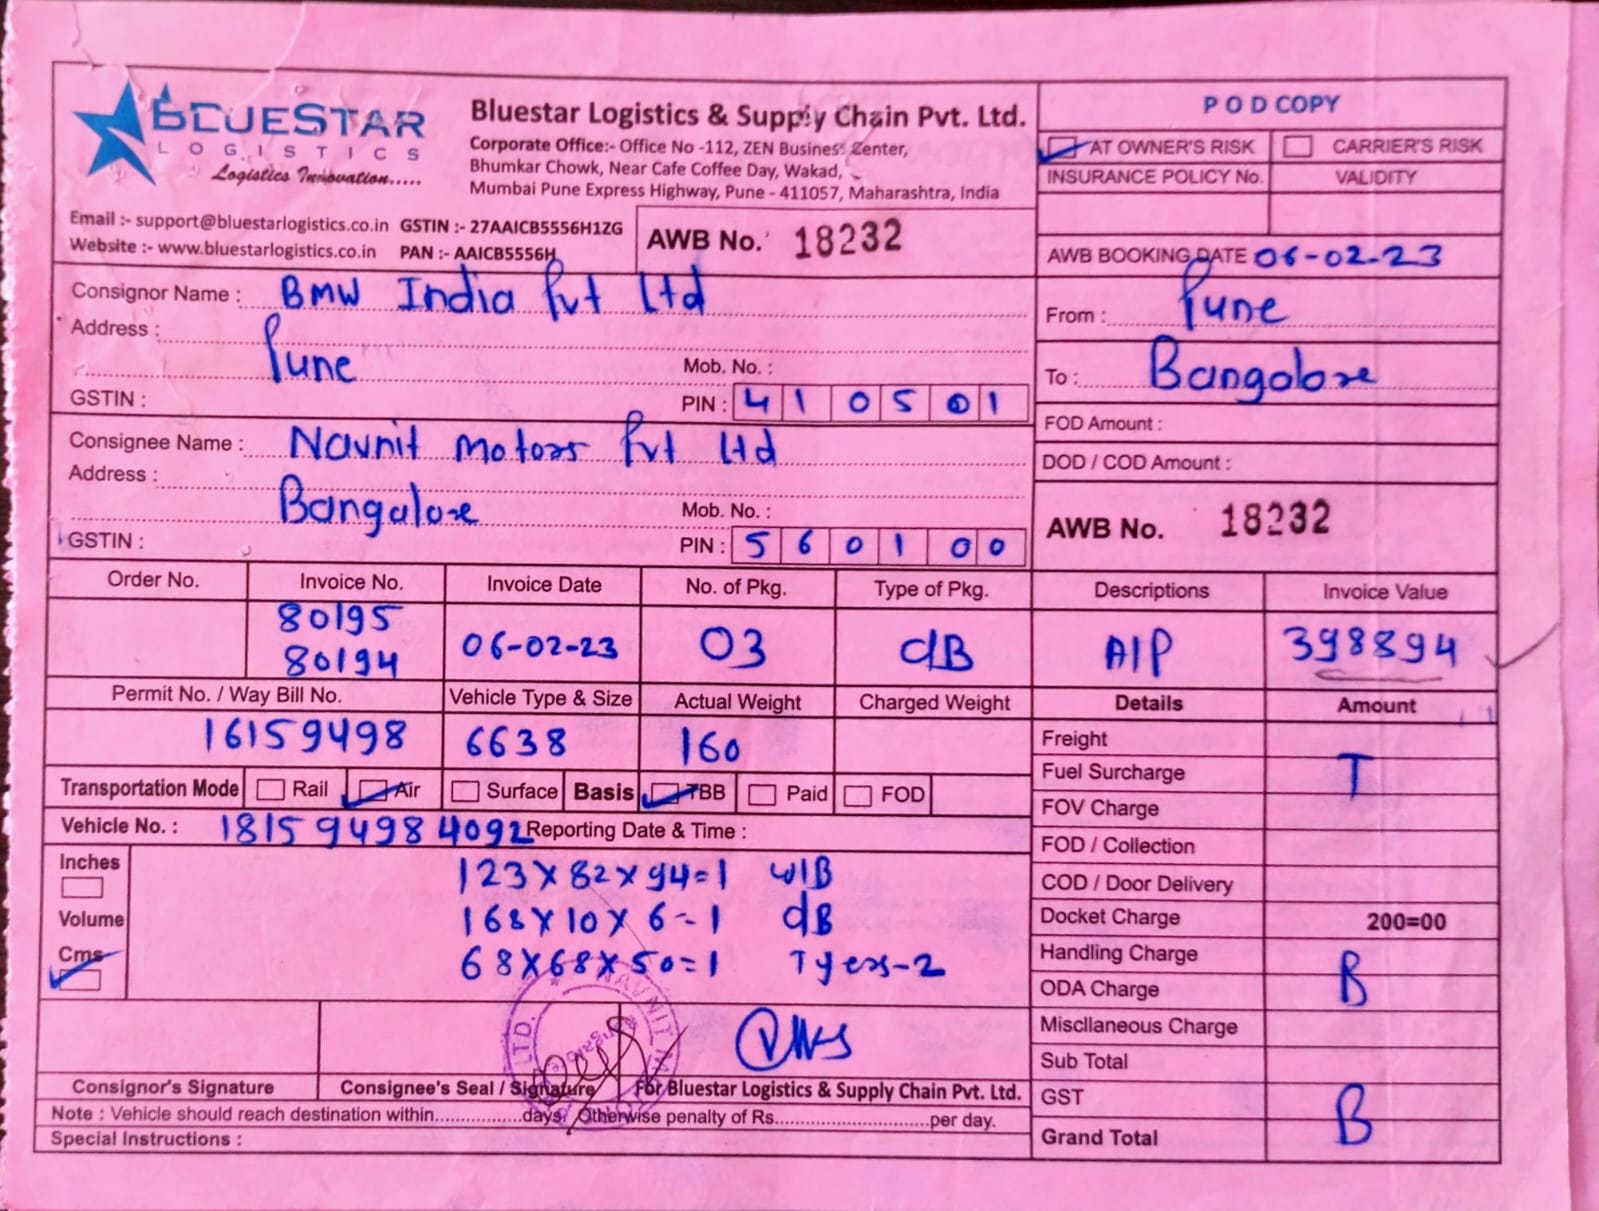 BLUESTAR
LOGISTICS
Logistics Innovation.....
Bluestar Logistics & Supply Chain Pvt. Ltd.
Corporate Office:- Office No -112, ZEN Business Zenter,
Bhumkar Chowk, Near Cafe Coffee Day, Wakad,
Mumbai Pune Express Highway, Pune - 411057, Maharashtra, India
Email :- support@bluestarlogistics.co.in GSTIN :- 27AAICB5556H1ZG
Website :- www.bluestarlogistics.co.in PAN :- AAICB5556H
AWB No. 18232
POD COPY
AT OWNER'S RISK CARRIER'S RISK
INSURANCE POLICY No. VALIDITY
AWB BOOKING DATE 06-02-23
Consignor Name : BMW India Pvt Ltd
Address :
Pune
Mob. No. :
GSTIN :
PIN : 410501
From : Pune
To : Bangalore
FOD Amount :
DOD / COD Amount :
Consignee Name : Navnit Motors Pvt Ltd
Address :
Bangalore
Mob. No. :
GSTIN :
PIN : 560100
AWB No. 18232
Order No. Invoice No. Invoice Date No. of Pkg. Type of Pkg. Descriptions Invoice Value
80195
80194 06-02-23 03 dB A/P 398894
Permit No. / Way Bill No. Vehicle Type & Size Actual Weight Charged Weight Details Amount
16159498 6638 160
Transportation Mode Rail Air Surface Basis TBB Paid FOD
Vehicle No. : 181594984092 Reporting Date & Time :
Inches
Volume
Cms
123X82X94=1 W/B
168X10X6-1 dB
68X68X50=1 Tyers-2
Freight
Fuel Surcharge T
FOV Charge
FOD / Collection
COD / Door Delivery
Docket Charge 200=00
Handling Charge
B
ODA Charge
Miscllaneous Charge
Sub Total
GST
B
Grand Total
NAVNIT
LTD.
Consignor's Signature Consignee's Seal / Signature For Bluestar Logistics & Supply Chain Pvt. Ltd.
Note : Vehicle should reach destination within..................days. Otherwise penalty of Rs.................................per day.
Special Instructions :